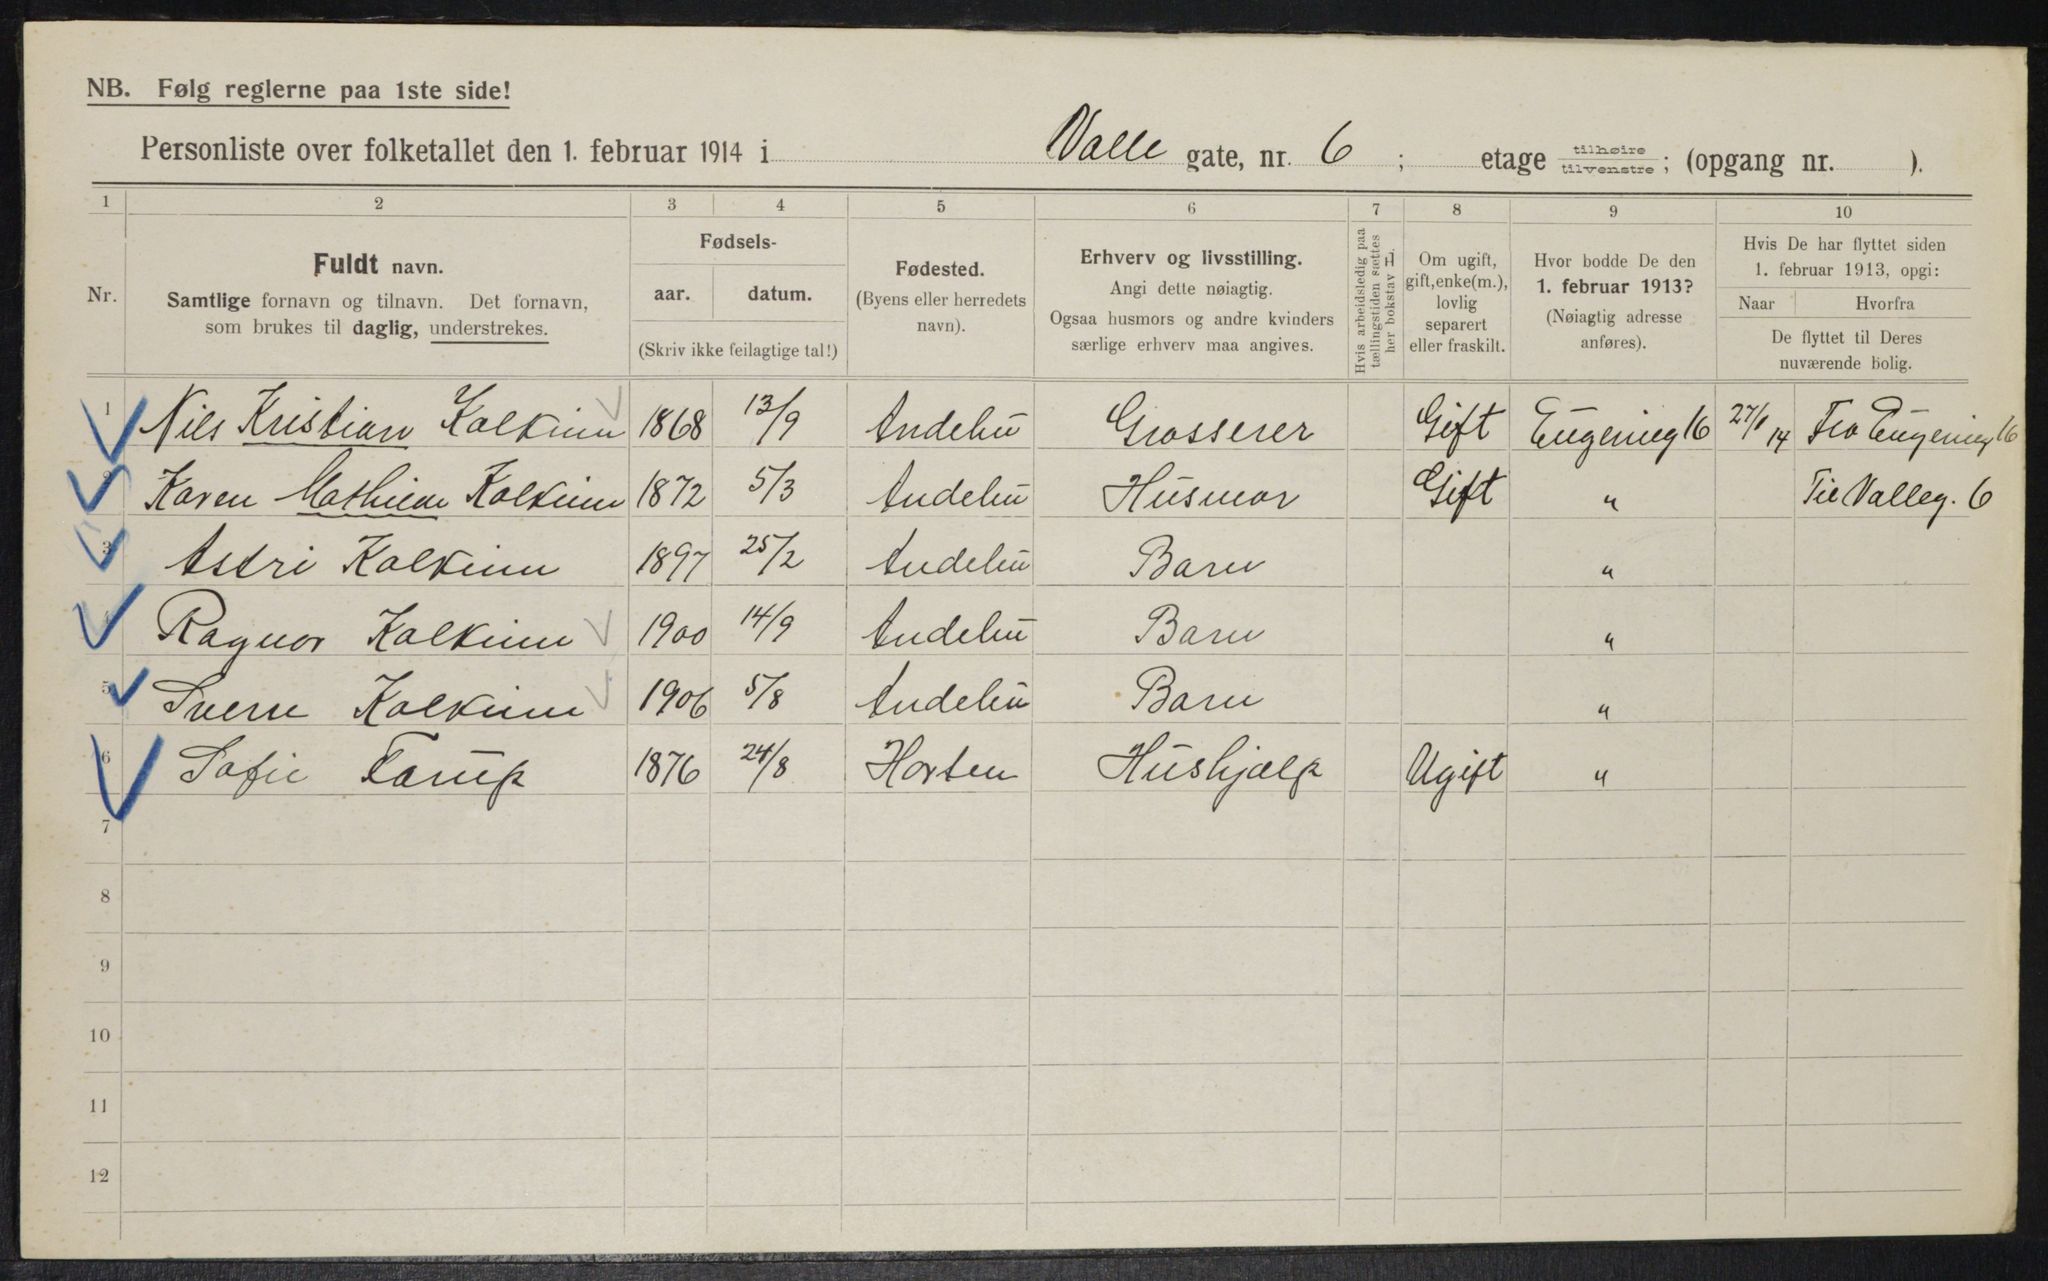 NB. Følg reglerne paa 1ste side!
Personliste over folketallet den 1. februar 1914 i Valle gate, nr. 6 ; etage tilhøire/tilvenstre; (opgang nr. ).
1 2 3 4 5 6 7 8 9 10
Nr.
Fuldt navn.
Samtlige fornavn og tilnavn. Det fornavn,
som brukes til daglig, understrekes.
Fødsels-
aar. datum.
(Skriv ikke feilagtige tal!)
Fødested.
(Byens eller herredets
navn).
Erhverv og livsstilling.
Angi dette nøiagtig.
Ogsaa husmors og andre kvinders
særlige erhverv maa angives.
Hvis arbeidsledig paa
tællingstiden sættes
her bokstav L
Om ugift,
gift, enke(m.),
lovlig
separert
eller fraskilt.
Hvor bodde De den
1. februar 1913?
(Nøiagtig adresse
anføres).
Hvis De har flyttet siden
1. februar 1913, opgi:
Naar Hvorfra
De flyttet til Deres
nuværende bolig.
1 Nils Kristian Kolkinn 1868 13/9 Andebu Grosserer Gift Eugenieg 16 27/1 14 Fra Eugenieg 16
2 Karen Mathilde Kolkinn 1872 5/3 Andebu Husmor Gift " Til Valleg. 6
3 Astri Kolkinn 1897 25/2 Andebu Barn "
4 Ragnar Kolkinn 1900 14/9 Andebu Barn "
5 Sverre Kolkinn 1906 5/8 Andebu Barn "
6 Sofie Tarup 1876 24/8 Horten Hushjælp Ugift "
7
8
9
10
11
12